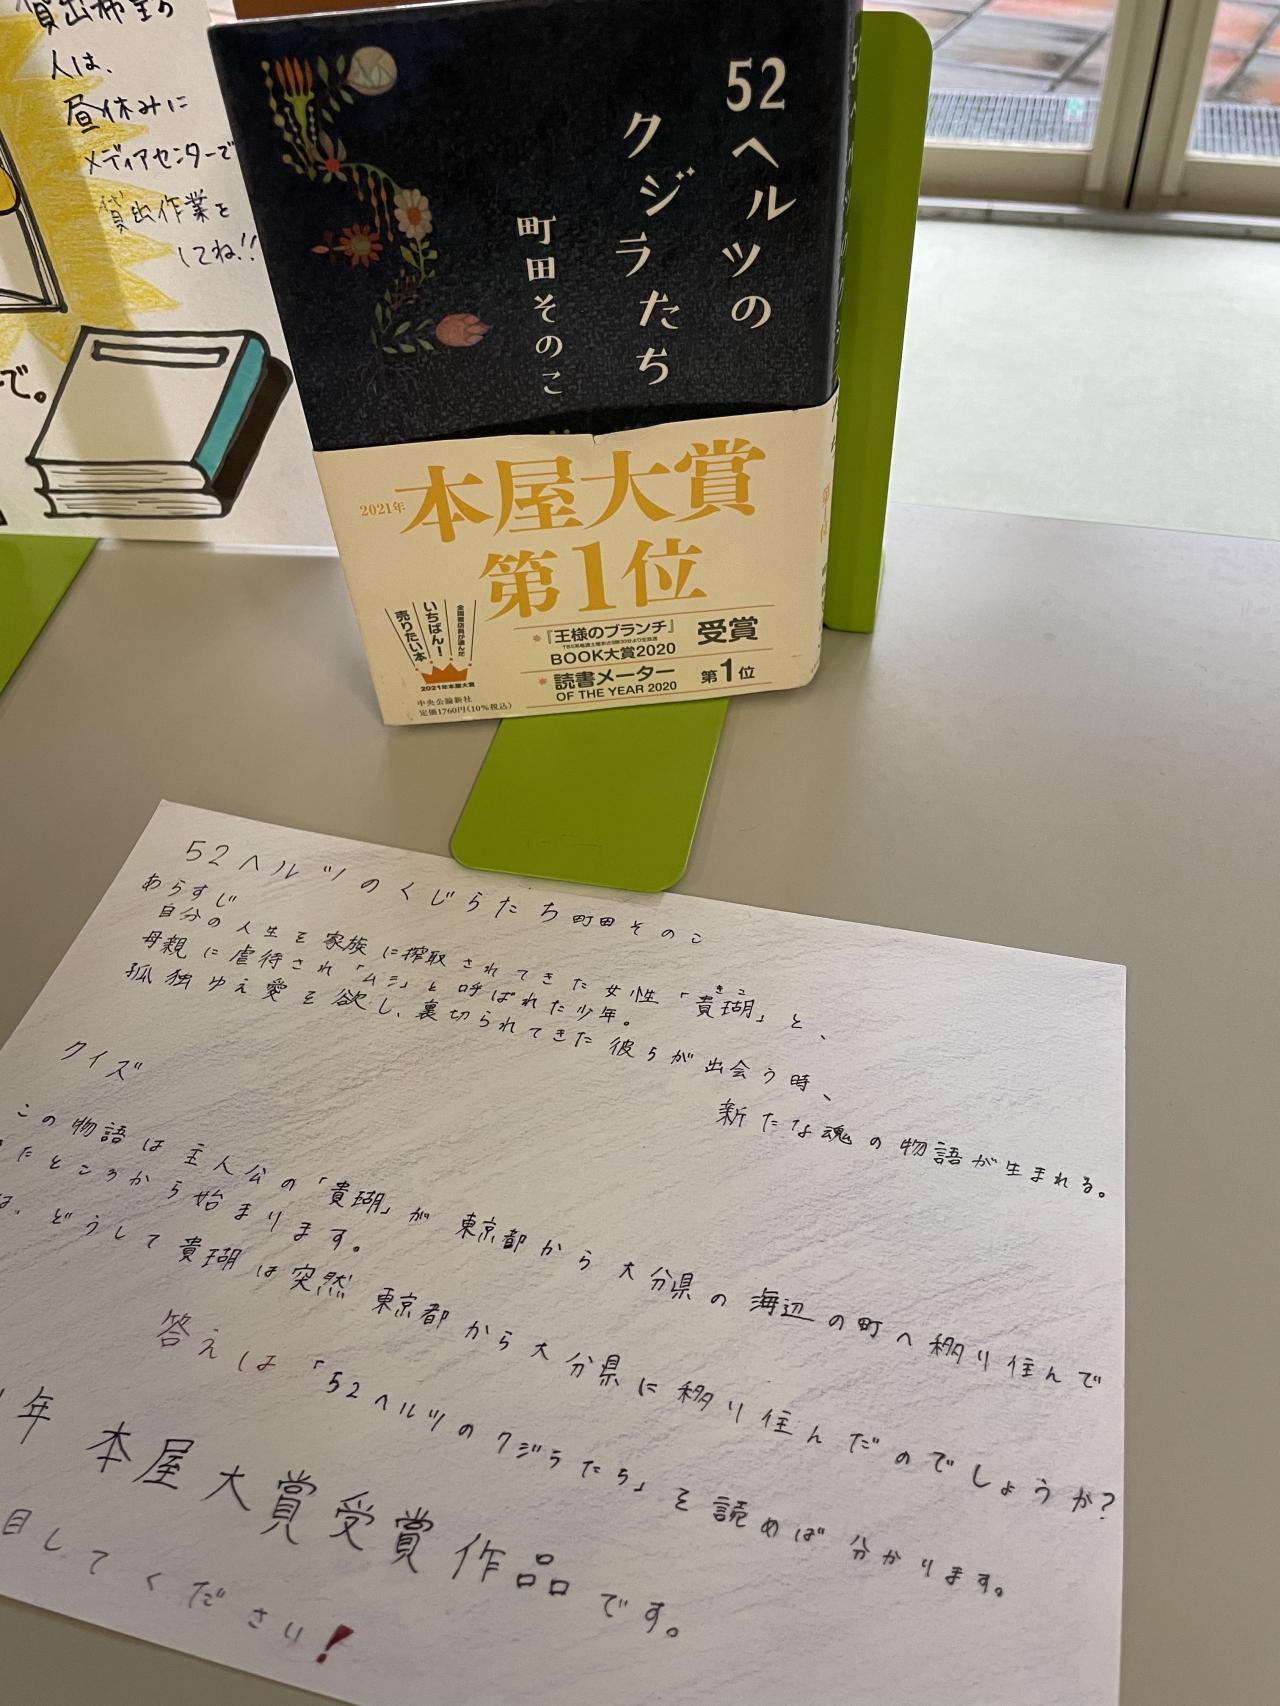 貸出希望の
人は、
昼休みに
メディアセンターで
貸出作業を
してね!!
で。
52ヘルツの
クジラたち
町田そのこ
2021年
本屋大賞
第1位
全国書店員が選んだ
いちばん!
売りたい本
2021年本屋大賞
『王様のブランチ』
BOOK大賞2020
受賞
読書メーター
OF THE YEAR 2020
第1位
中央公論新社
定価1760円(10%税込)
52ヘルツのくじらたち 町田そのこ
あらすじ
自分の人生を家族に搾取されてきた女性「貴瑚」と、
きこ
母親に虐待され「ムシ」と呼ばれた少年。
孤独ゆえ愛を欲し、裏切られてきた彼らが出会う時、
新たな魂の物語が生まれる。
クイズ
この物語は主人公の「貴瑚」が東京都から大分県の海辺の町へ移り住んで
たところから始まります。
は、どうして貴瑚は突然東京都から大分県に移り住んだのでしょうか?
答えは「52ヘルツのクジラたち」を読めば分かります。
年 本屋大賞受賞作品です。
目してください!